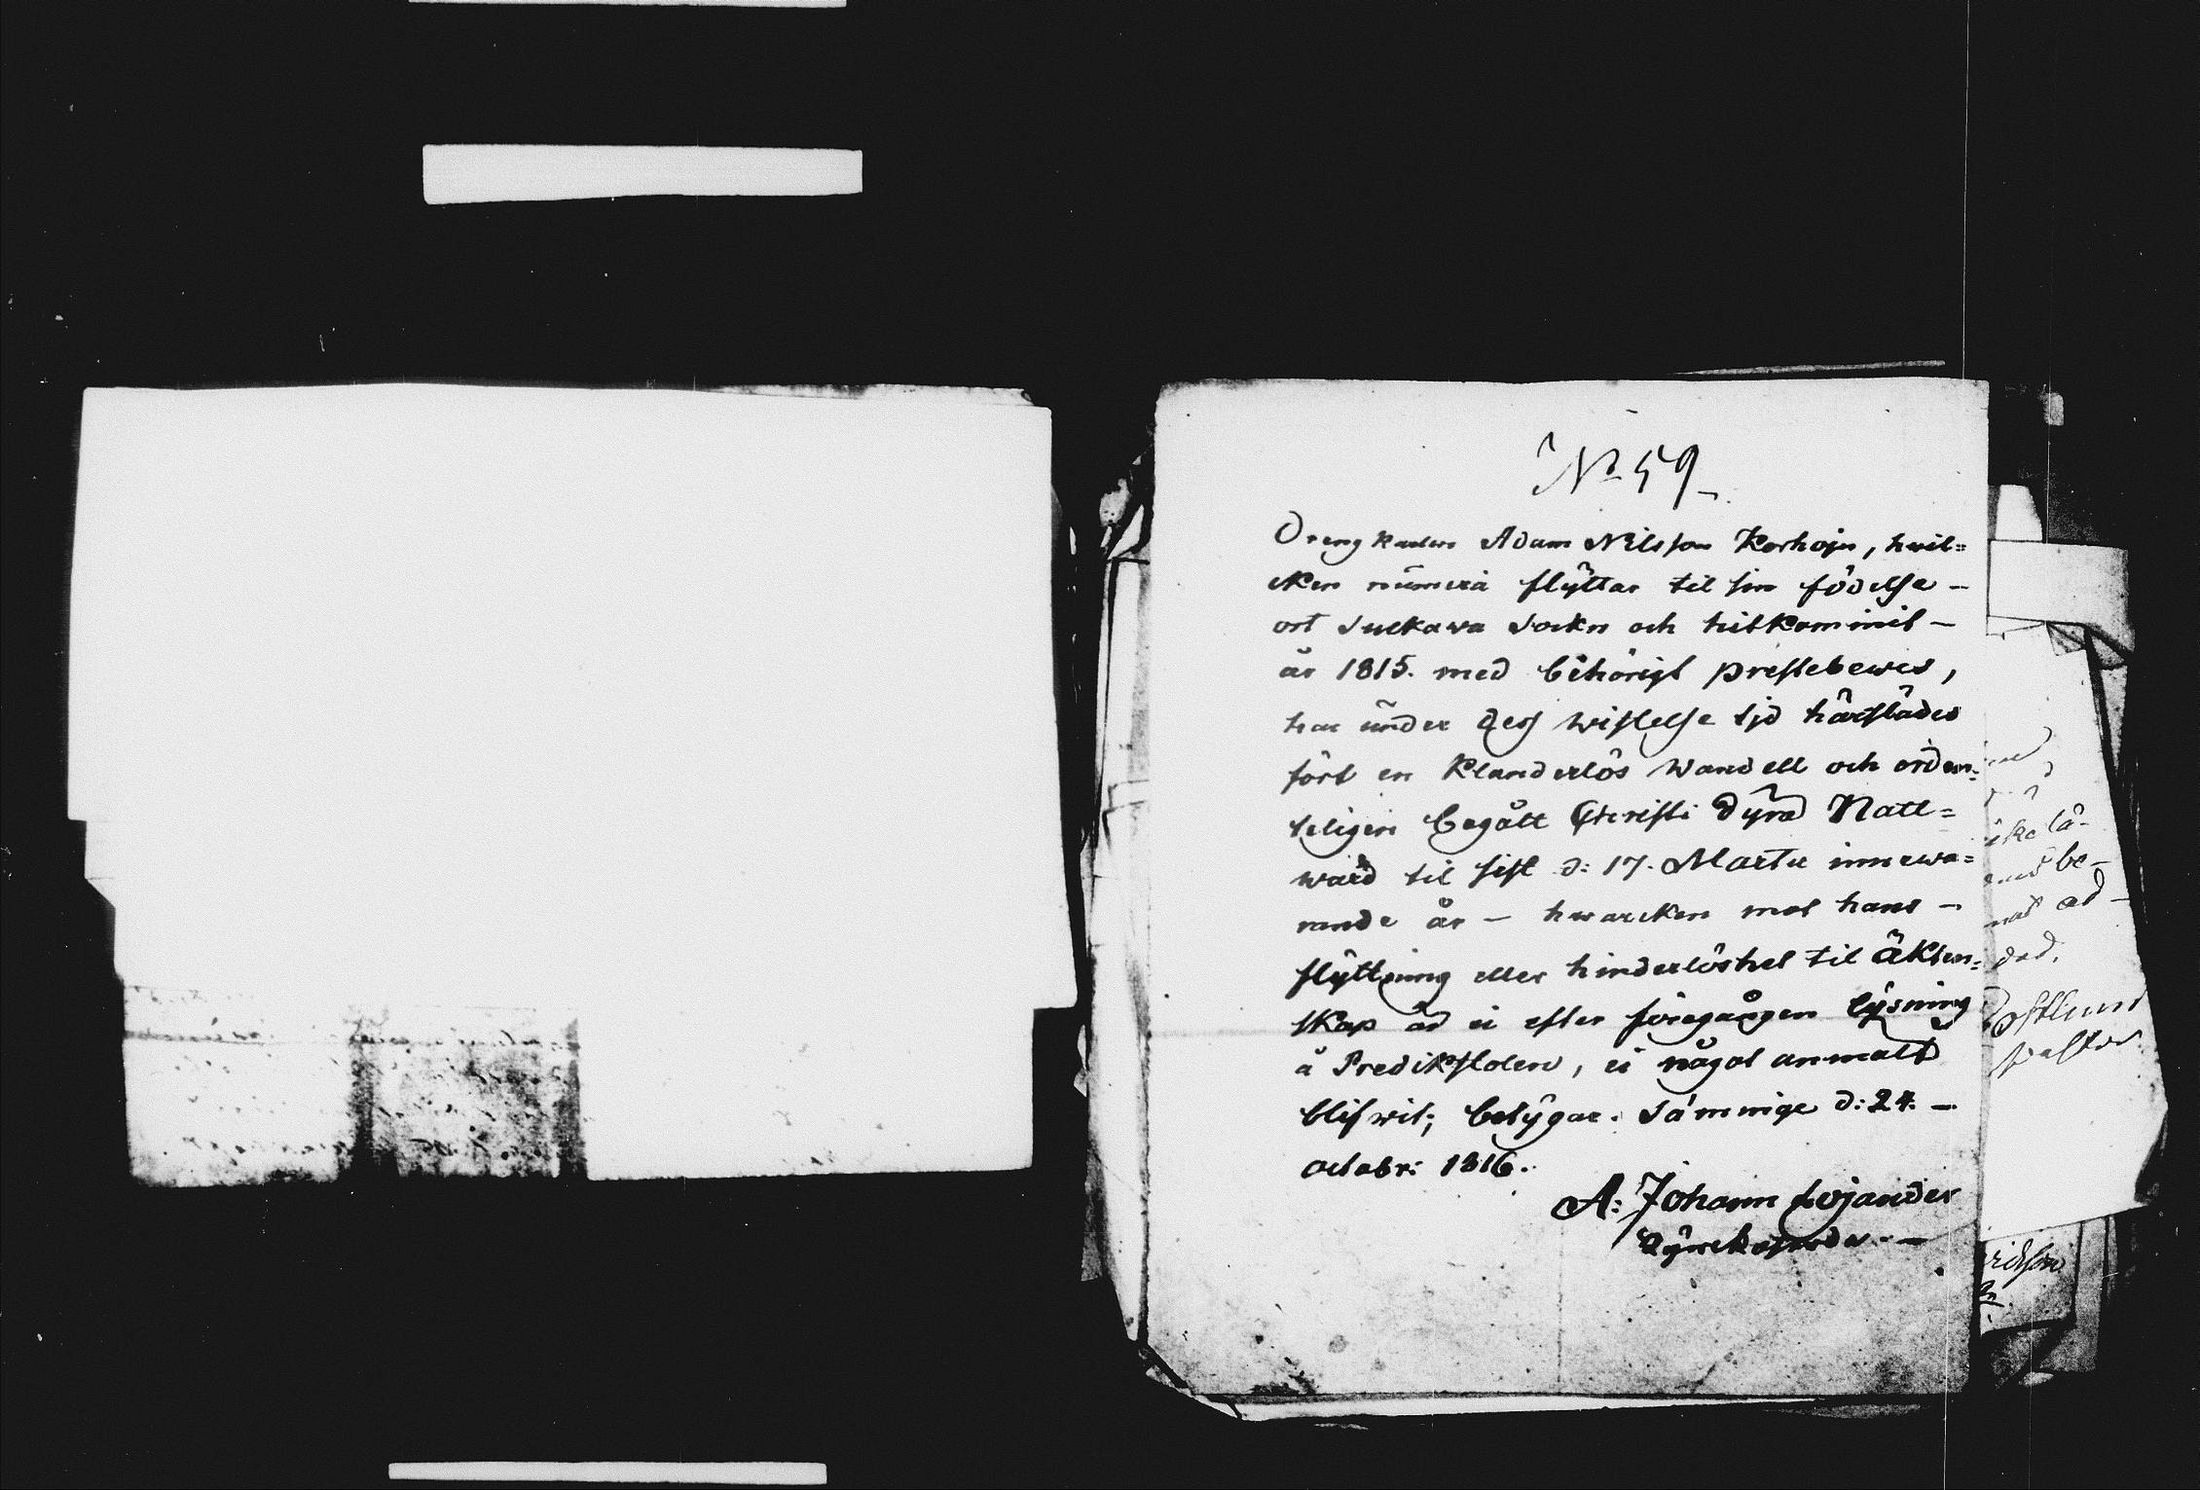 No 59
Drengkarlen Adam Nilsson Korhoin, hwil=
cken numera flyttar til sin födelse -
ort Sulkawa Sockn och hitkommit -
år 1815. med behörigt prestebewis,
har under des wistelse tjd härstädes
fört en klanderlös wandell och orden=
teligen begått Christi dyra Natt=
ward til sist d: 17. Martii innewa=
rande år - hwarcken mot hans -
flyttning eller hinderlöshet til äkten=
skap är ei efter föregången lysning
å Predikstolen, ei något anmält
blifwit; betygar. Jäminge d: 24. -
octobr: 1816.
A: Johann Lojander
Kyrckoherde. -
ikelå-
be-
ad-
ded.
Östlund
Pastor